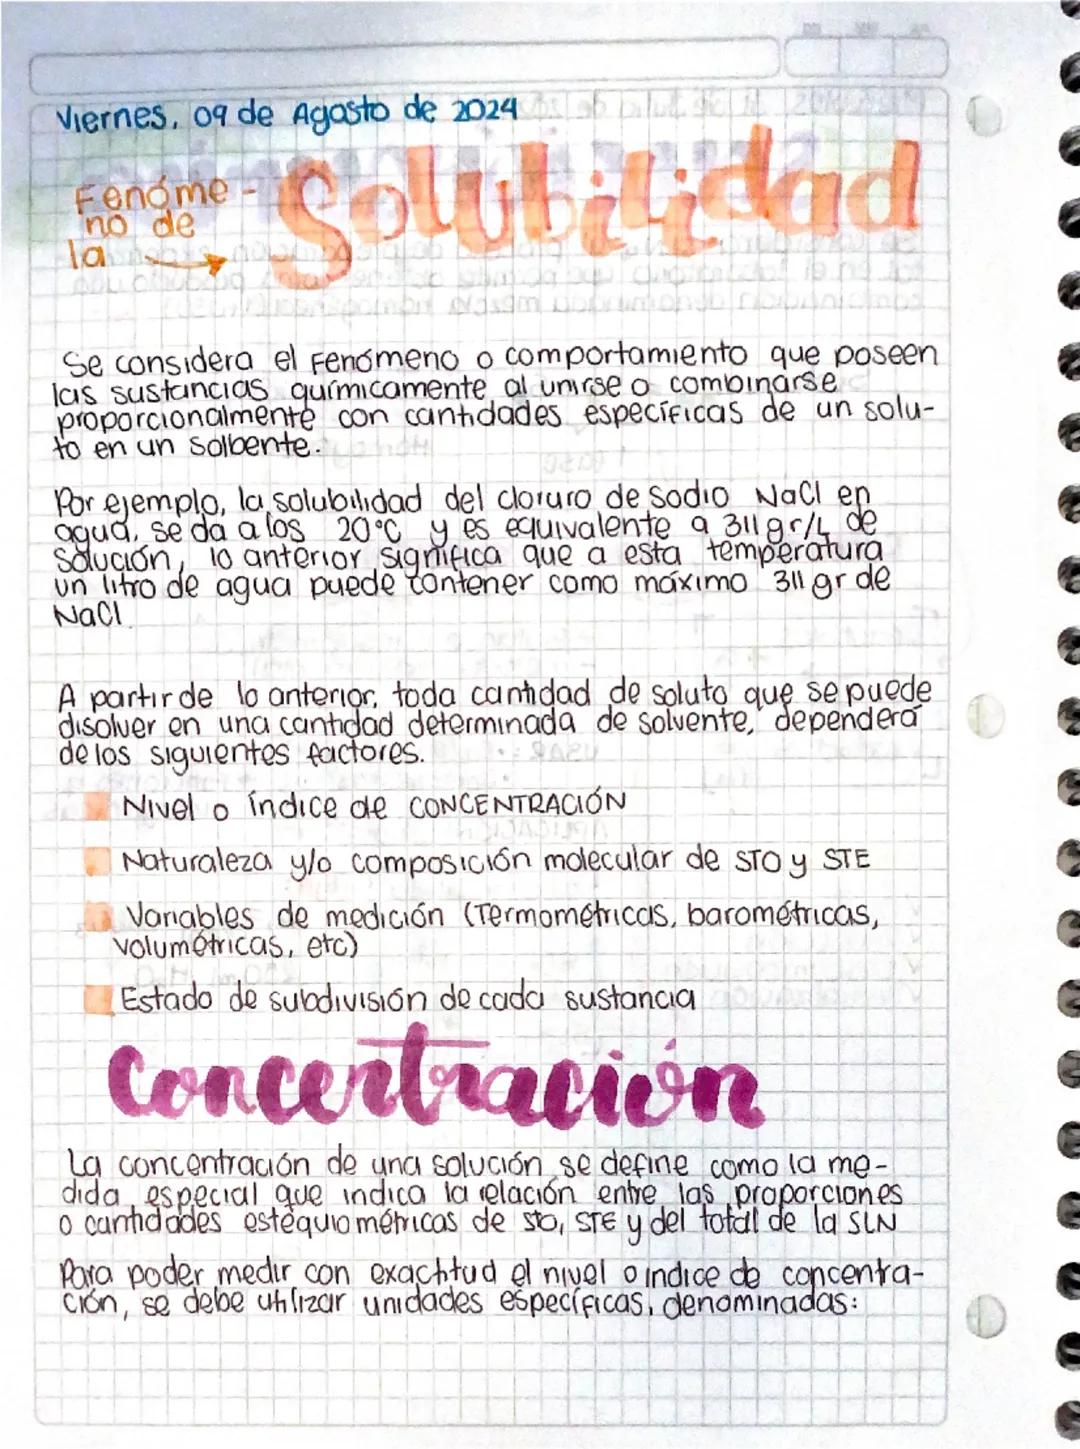 Viernes, 09 de Agosto de 2024
Fenóme-
no de
la
Solubilidad
Se considera el Fenómeno o comportamiento que poseen
las sustancias químicamente al unirse o combinarse
proporcionalmente con cantidades específicas de un solu-
to en un solbente.
Por ejemplo, la solubilidad del cloruro de sodio NaCl en
agua, se da a los 20°C y es equivalente a 311 gr/L de
solución, lo anterior significa que a esta temperatura
un litro de agua puede contener como máximo 311 gr de
NaCl
A partir de lo anterior, toda cantidad de soluto que se puede
disolver en una cantidad determinada de solvente, dependerá
de los siguientes factores.
Nivel o índice de CONCENTRACIÓN
Naturaleza y/o composición molecular de STO y STE
Variables de medición (Termométricas, barométricas,
volumétricas, etc)
Estado de subdivisión de cada sustancia
Concentración
La concentración de una solución se define como la me-
dida especial que indica la relación entre las proporciones
o cantidades estequiométricas de sto, STE y del total de la SLN
Para poder medir con exactitud el nivel o indice de concentra-
ción, se debe utilizar unidades específicas, denominadas: